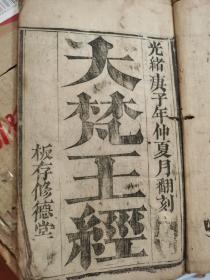 光緒庚子年仲夏月翻刻
大梵王經
板存修德堂